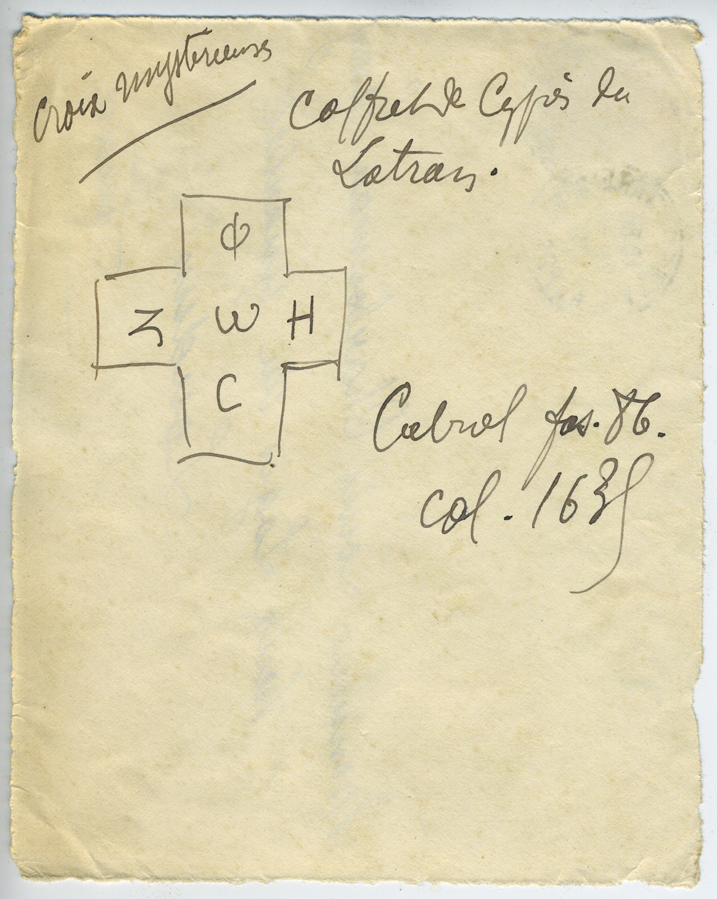 Croix mystérieuse
Coffret de Cyprès du
Latran.
Φ
Z W H
C
Cabrol fas. 86.
col. 1635